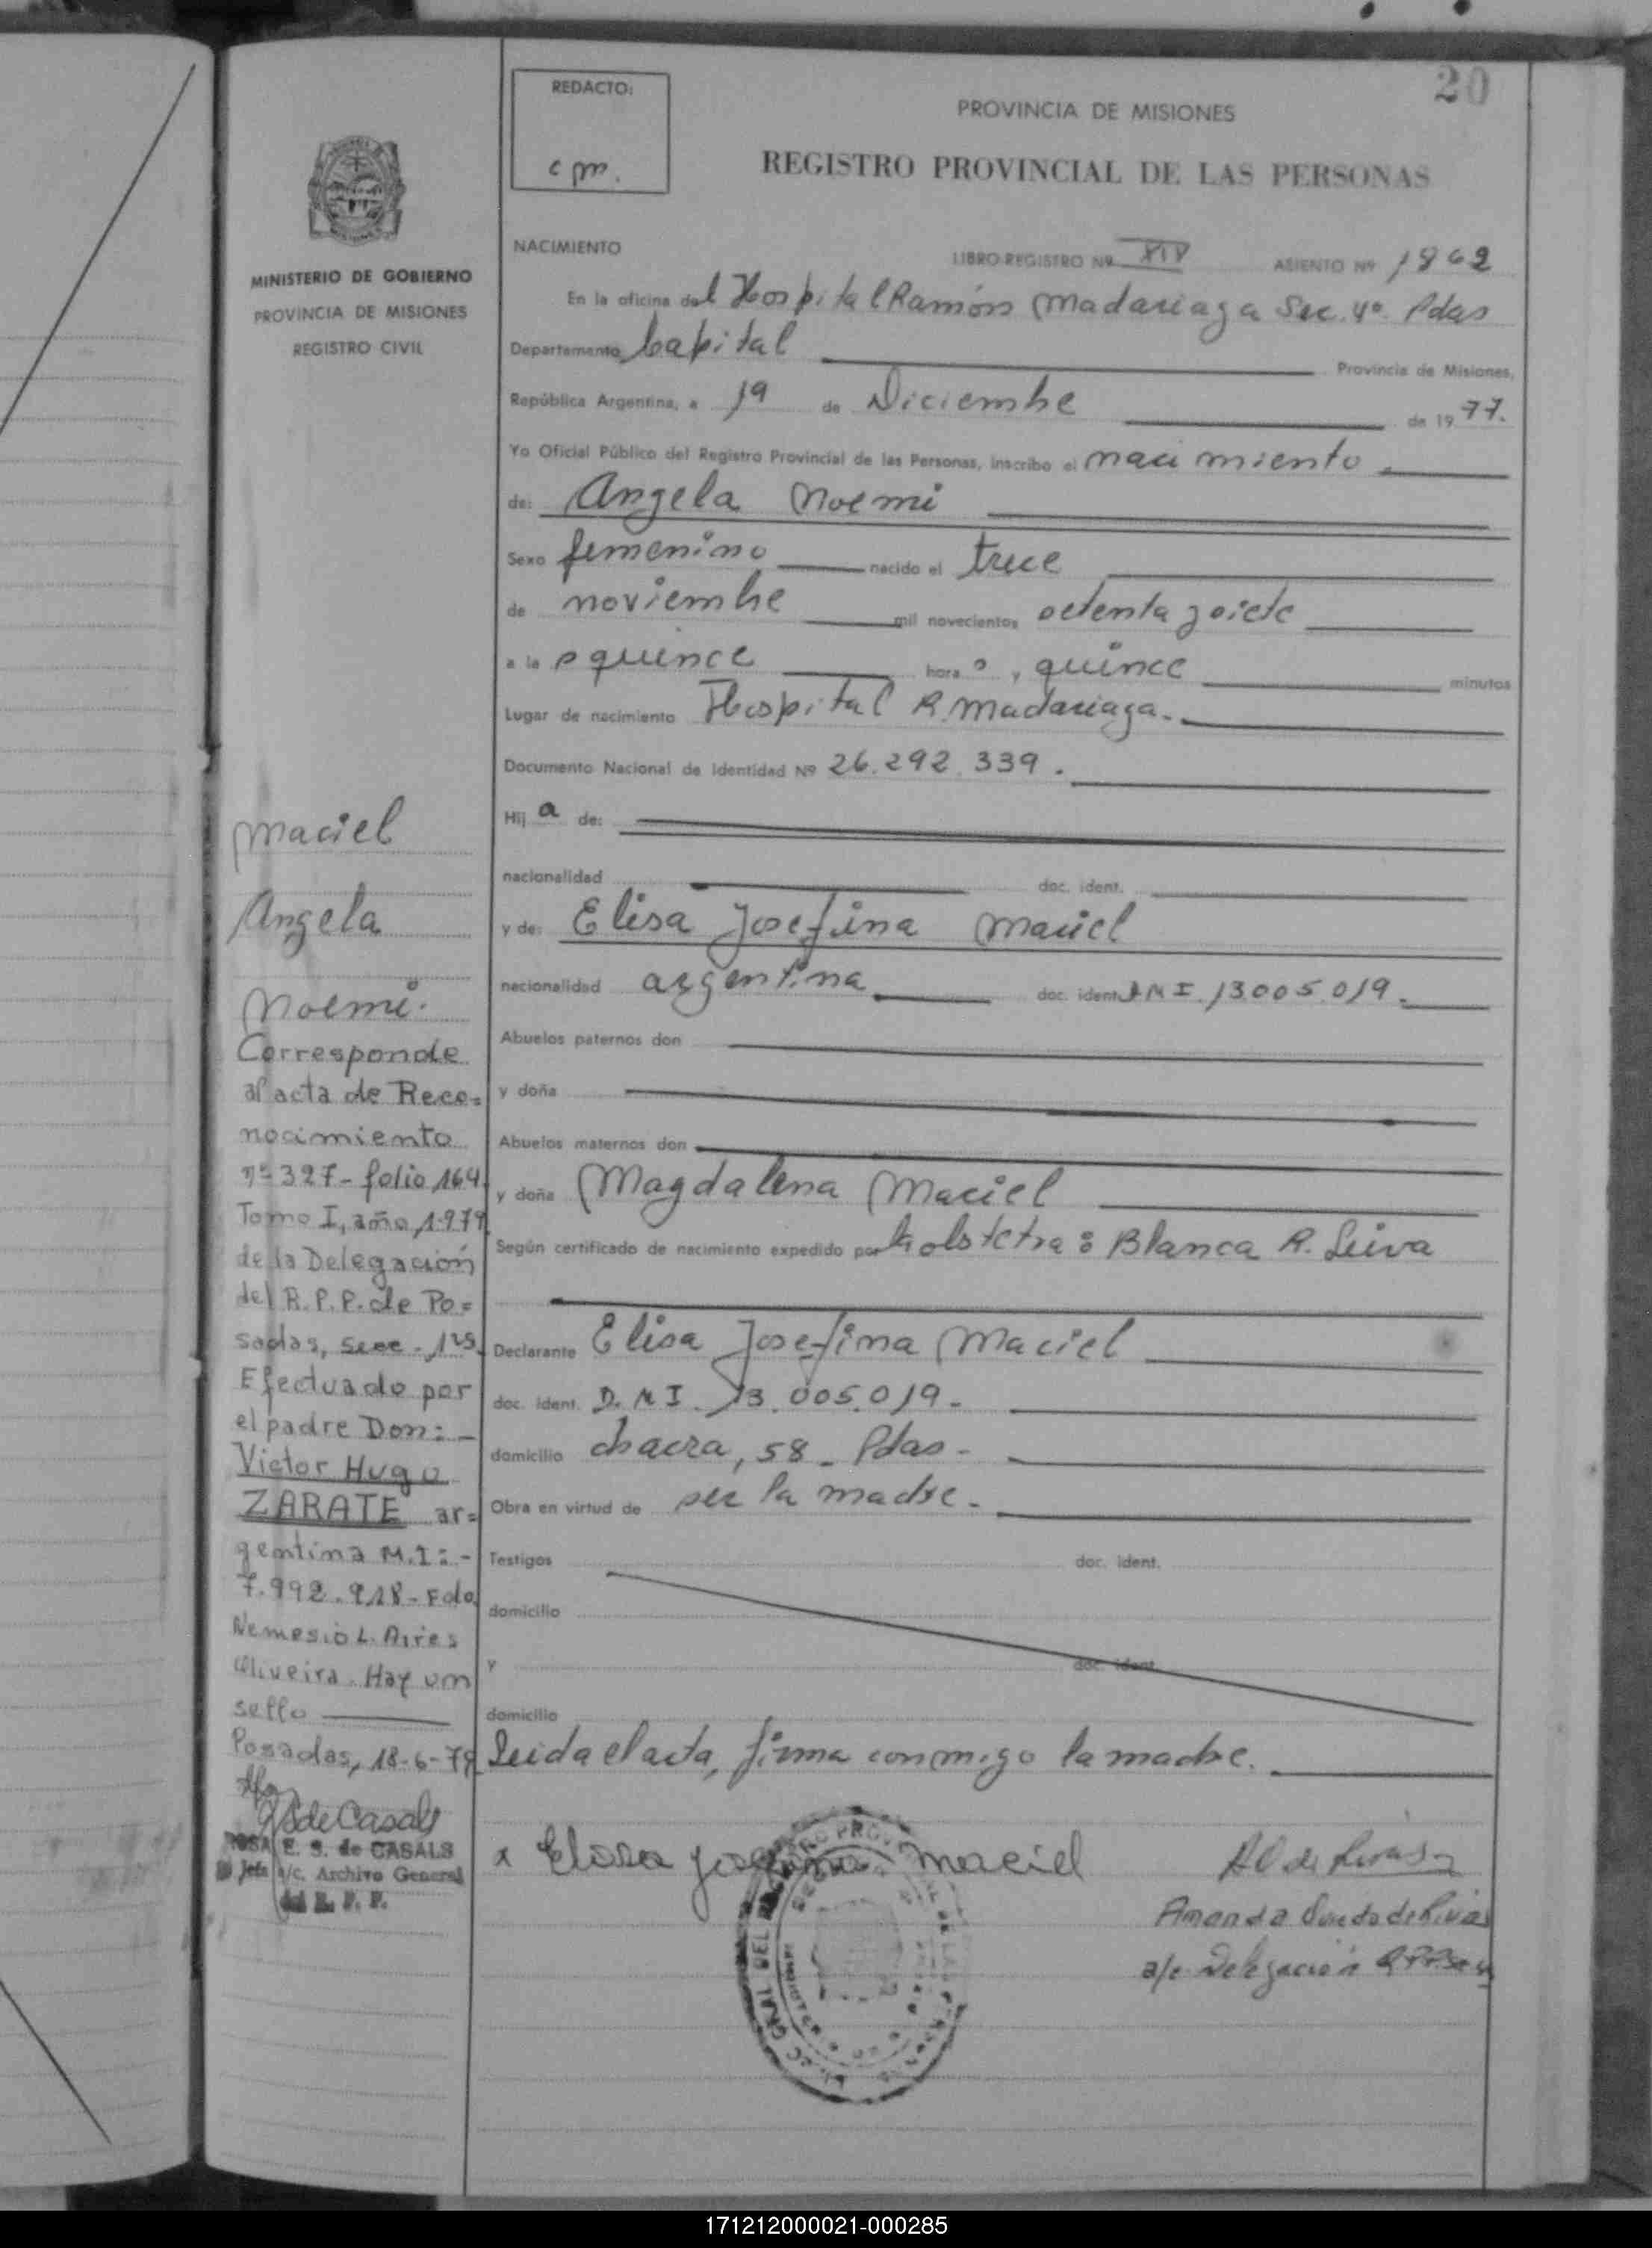 20
REDACTO:
c m.
PROVINCIA DE MISIONES
REGISTRO PROVINCIAL DE LAS PERSONAS
MINISTERIO DE GOBIERNO
PROVINCIA DE MISIONES
REGISTRO CIVIL
NACIMIENTO LIBRO-REGISTRO Nº XIV ASIENTO Nº 1862
En la oficina del Hospital Ramón Madariaga Sec. 4º Pdas
Departamento Capital Provincia de Misiones,
República Argentina, a 19 de Diciembre de 1977.
Yo Oficial Público del Registro Provincial de las Personas, inscribo el nacimiento
de: Angela Noemi
Sexo femenino nacido el trece
de noviembre mil novecientos setenta y siete
a la s quince hora s, y quince minutos
Lugar de nacimiento Hospital R. Madariaga.
Documento Nacional de Identidad Nº 26.292.339.
Hij a de:
nacionalidad doc. ident.
y de: Elisa Josefina Maciel
nacionalidad argentina doc. ident. D N I. 13.005.019.
Abuelos paternos don
y doña
Abuelos maternos don
y doña Magdalena Maciel
Según certificado de nacimiento expedido por la obstetra: Blanca R. Leiva
Declarante Elisa Josefina Maciel
doc. ident. D. N I. 13.005.019.
domicilio chacra, 58. Pdas.
Obra en virtud de ser la madre.
Testigos doc. ident.
domicilio
y doc. ident.
domicilio
Leida el acta, firma conmigo la madre.
x Elisa Josefina Maciel
Amanda de Rivas
a/c Delegación
Maciel
Angela
Noemi.
Corresponde
al acta de Reco=
nocimiento
nº 327- folio 164
Tomo I, año 1979
de la Delegación
del R.P.P. de Po=
sadas, Secc. 1ra.
Efectuado por
el padre Don: -
Victor Hugo
ZARATE ar=
gentina M.I: -
7.992.918 - Fdo
Nemesio L. Aires
Oliveira. Hay un
sello
Posadas, 18-6-79
ROSA E. S. de CASALS
Jefa a/c. Archivo General
del R. P. P.
171212000021-000285